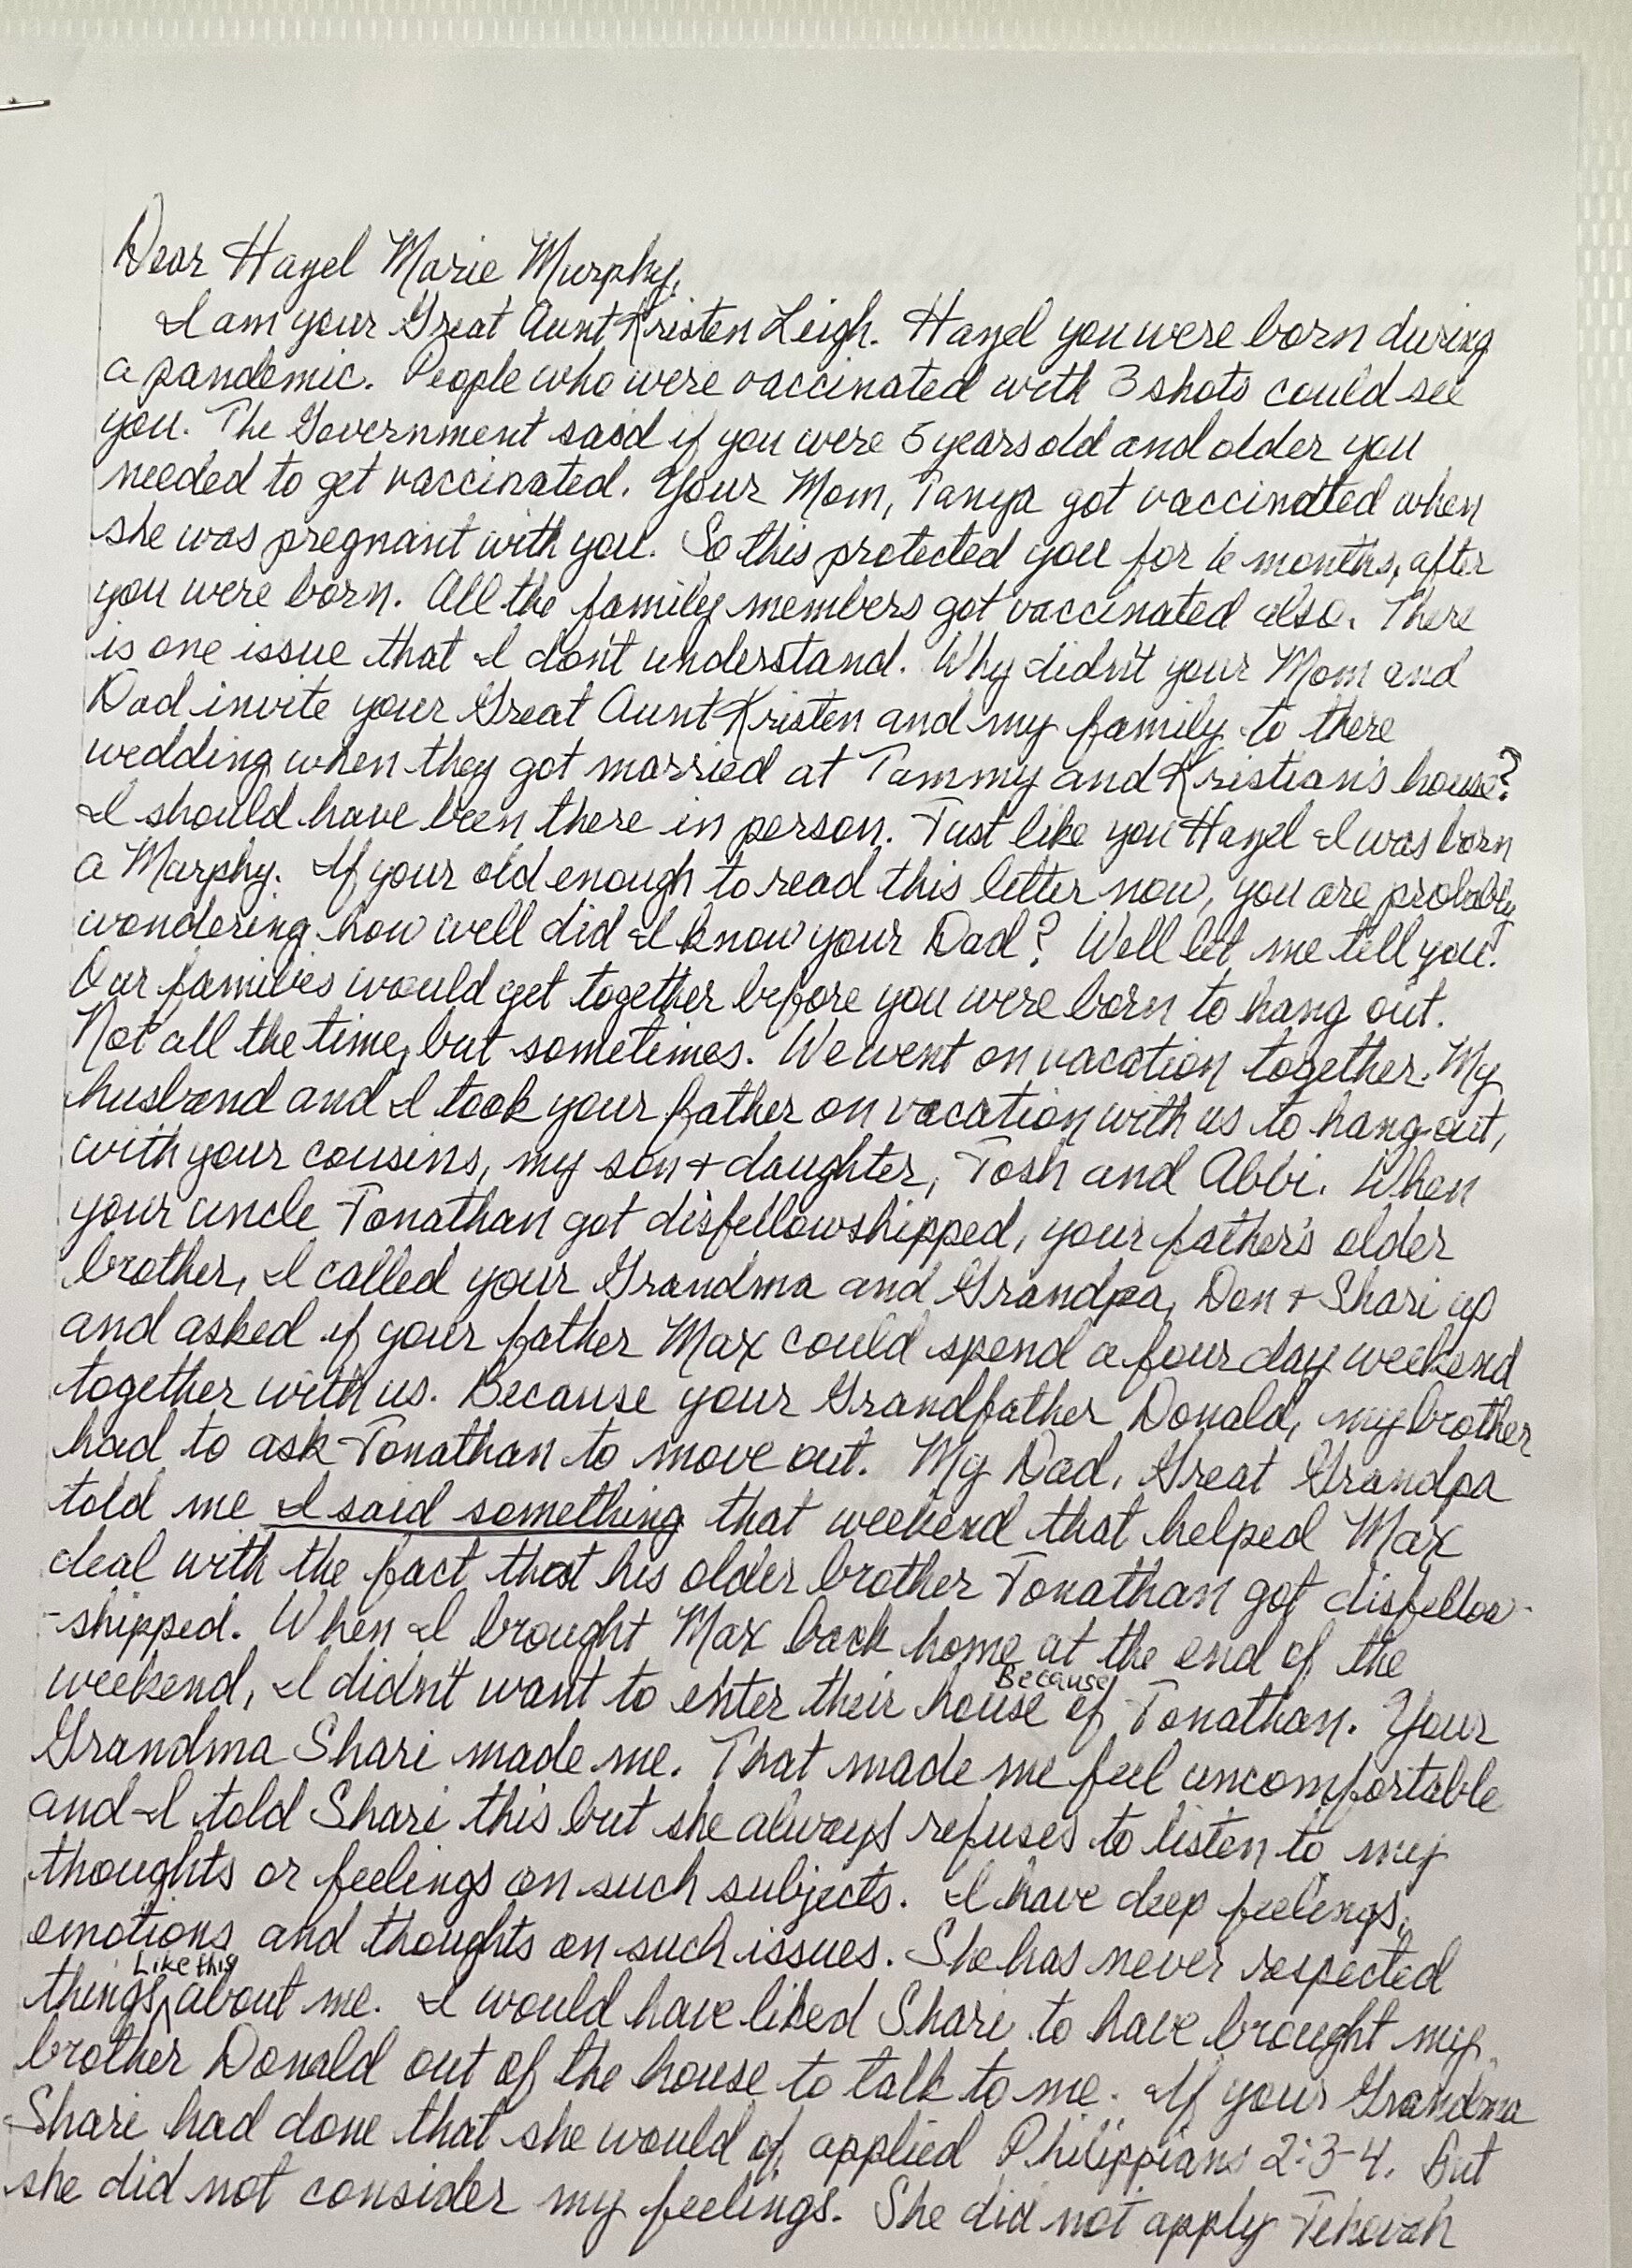 Dear Hazel Marie Murphy,
I am your Great Aunt Kristen Leigh. Hazel you were born during
a pandemic. People who were vaccinated with 3 shots could see
you. The Government said if you were 5 years old and older you
needed to get vaccinated. Your Mom, Tanya got vaccinated when
she was pregnant with you. So this protected you for 6 months, after
you were born. All the family members got vaccinated also. There
is one issue that I don't understand. Why didn't your Mom and
Dad invite your Great Aunt Kristen and my family to there
wedding when they got married at Tammy and Kristian's house?
I should have been there in person. Just like you Hazel I was born
a Murphy. If your old enough to read this letter now, you are probably
wondering how well did I know your Dad? Well let me tell you.
Our families would get together before you were born to hang out.
Not all the time, but sometimes. We went on vacation together. My
husband and I took your father on vacation with us to hang out,
with your cousins, my son + daughter, Josh and Abbi. When
your uncle Jonathan got disfellowshipped, your father's older
brother, I called your Grandma and Grandpa, Don + Shari up
and asked if your father Max could spend a four day weekend
together with us. Because your Grandfather Donald, my brother
had to ask Jonathan to move out. My Dad, Great Grandpa
told me I said something that weekend that helped Max
deal with the fact that his older brother Jonathan got disfellow-
-shipped. When I brought Max back home at the end of the
weekend, I didn't want to enter their house Because of Jonathan. Your
Grandma Shari made me. That made me feel uncomfortable
and I told Shari this but she always refuses to listen to my
thoughts or feelings on such subjects. I have deep feelings,
emotions and thoughts on such issues. She has never respected
things Like this about me. I would have liked Shari to have brought my
brother Donald out of the house to talk to me. If your Grandma
Shari had done that she would of applied Philippians 2:3-4. But
she did not consider my feelings. She did not apply Jehovah